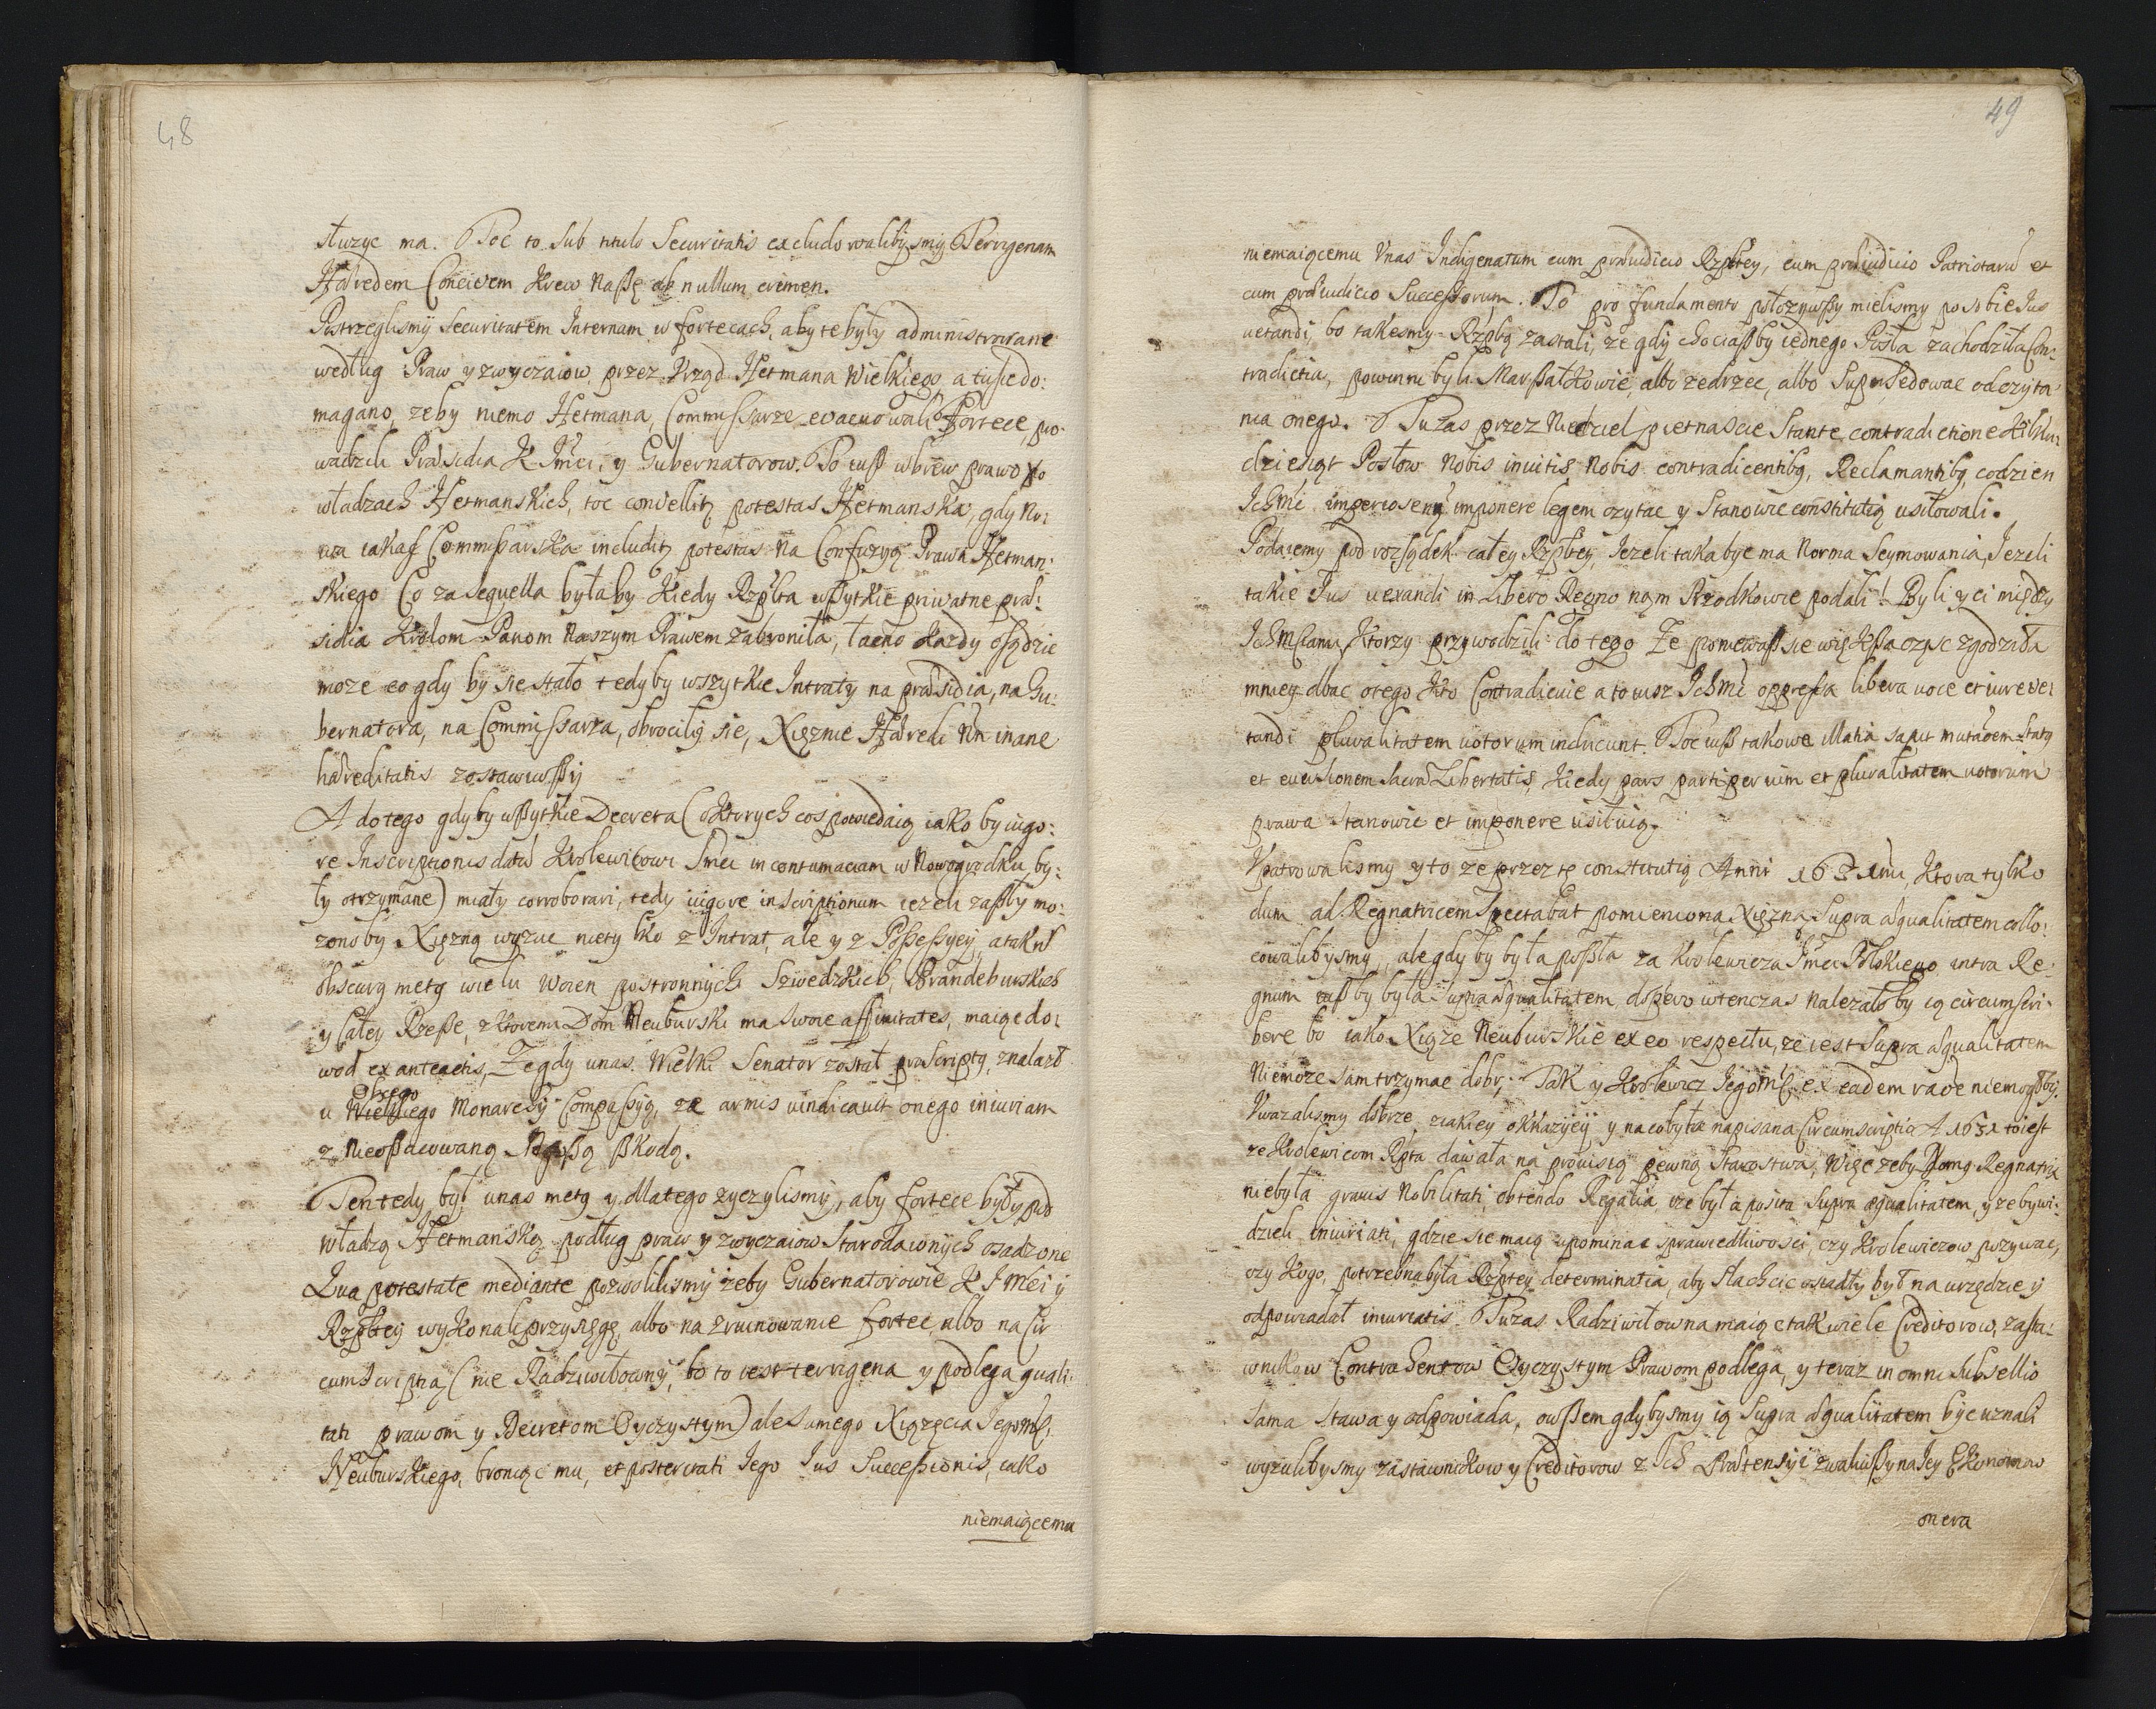 48
słuzyc ma. Toc to sub titulo Securitatis excludowalibysmy Terrigenam
Hæredem Concivem Krew Naszę ob nullum crimen.
Postrzeglismy Securitatem Internam w fortecach, aby te były administrowane
według Praw y zwyczaiow przez Vrząd Hetmana Wielkiego a tu się do:
magano, zeby niemo Hetmana, Commissarze evacuowali Fortece, wo:
wadzili Præsidia K Jmci, y Gubernatorow. To iusz wbrew prawo o
władzach Hetmanskich, toc convellitꝗ potestas Hetmanska, gdy No:
wa iakas Commissarska includitꝗ potestas na Confuzyą Prawa Hetman:
skiego Co za sequella byłaby Kiedy Rzplta wszytkie priwatne præ:
sidia Krolom Panom Naszym Prawem zabroniła, łacno kazdy osądzic
moze co gdy by sie stało tedyby wszytkie Intraty na præsidia, na Gu:
bernatora, na Commissarza, obrociłÿ sie, Xięznie Hæredi Nn inane
hæreditatis zostawiwszÿ
A do tego gdyby wszytkie Decreta (oktorych cos powiedaią iakoby uigo:
re Inscriptionis datæ Krolewicowi Jmci in contumaciam w Nowogrodku by:
ły otrzymane) miały corroborari, tedy uigore inscriptionum iezeli zaszły mo:
zonoby Xięzną wyzuc nietylko z Intrat, ale y z Possessyey, a tak nꝉ
obscurꝗ metꝗ wielu Woien postronnych Szwedzkich, Brandeburskich
y Całey Rzesze, z ktoremi Dom Neuburski ma swoie affinitates, maiąc do:
wod ex anteactis, Ze gdy unas Wielki Senator został proscriptꝗ, znalazł
Obcego
u Wielkiego Monarchy Compassyą, ze armis uindicauit onego iniuriam
z Nieoszacowaną Naszą szkodą.
Ten tedy był unas metꝗ y dlatego zyczylismy, aby fortece były pod
władzą Hetmanską podług praw y zwyczaiow Starodawnych osadzone
Qua potestate mediante pozwolilismy zeby Gubernatorowie K J Mci y
Rzpltey wykonali przysięgę, albo na zruinowanie fortec, albo na Cir
cumscriptią (nie Radziwiłowny, bo to iest terrigena y podlega quali:
tati prawom y Decretom Oyczystym) ale samego Xiązęcia Jegomſc,
Neuburskiego, broniąc mu, et posteritati Jego Jus Successionis, iako
niemaiącemu
49
niemaiącemu Vnas Indigenatum cum præiudicio Rzpltey, cum præiudicio Patriotarū et
cum præiudicio Successorum. To pro fundamento połozywszy mielismy po sobie Ius
uetandi, bo takesmy Rzpltą zastali, ze gdy chociaszby iednego Posła zachodziła Con:
tradictia, powinni byli Marszałkowie, albo zedrzec, albo Supersedowac od czyta:
nia onego. Tuzas przez Niedziel pietnascie Stante contradictione Kilku:
dziesiąt Posłow Nobis inuitis Nobis contradicentibꝗ, Reclamantibꝗ codzien
Ichmi imponere legem czytac y Stanowic constitutią usiłowali.
Podaiemy pod rozsądek całey Rzpltey, Iezeli taka byc ma Norma Seymowania, Jezeli
takie Ius uexandi in Libero Regno nąm Przodkowie podali! Byli y ci między
Ichmſciami, ktorzy przywodzili do tego Ze poniewasz sie większa częsc zgodziła
mniey dbac otego kto Contradicuie a to iusz Ichmi oppressa libera uoce et iure ve:
tandi pluralitatem uotorum inducunt. Toc iusz takowe illatia sapit mutaõem statꝗ
et euersionem sacræ Libertatis, Kiedy pars parti per uim et pluralitatem uotorum
prawa stanowic et imponere usiłuią.
Vpatrowalismy y to ze przez tę constitutią Anni 1631mi, ktora tylko
dum ad Regnatricem Spectabat pomieniona Xięzną Supra æqualitatem collo:
cowalibysmy, ale gdy by była poszła za Krolewicza Jmci Polskiego, intra Re:
gnum iuszby była supra æqualitatem, dopiero wtenczas nalezałoby ią circumscri:
bere bo iako Xiąze Neuburskie ex eo respectu, ze iest supra æqualitatem
Niemoze sam trzymac dobr, Tak y Krolewicz Jegomſc ex eadem raõe niemogłby.
Vwazalismy dobrze, ziakiey okkazyey y na co była napisana Circumscriptia A 1631 to iest
ze Krolewicom Rpta dawała na prouisią pewną Starostwa, Więc zeby Domꝗ Regnatrix
niebyła grauis Nobilitati, obtendo Regalia, ze była posita Supra æqualitatem, y zeby wi:
dzieli iniuriati, gdzie sie maią upominac sprawiedliwosci, czy Krolewiczow pozywac,
czy kogo, potrzebna była Rzptey determinatia, aby Slachcic osiadły był na urzędzie y
odpowiadał iniuriatis. Tuzas Radziwiłowna maiąc tak wiele Creditorow, zasta:
wnikow Contrahentow Oyczystym Prawom podlega, y teraz in omni subsellio
sama stawa y odpowiada, owszem gdybysmy ią supra æqualitatem byc uznali
wyzulibysmy zastawnikow y Creditorow z Ich Prætensyi zwaliwszy na Iey Ekonomią
onera